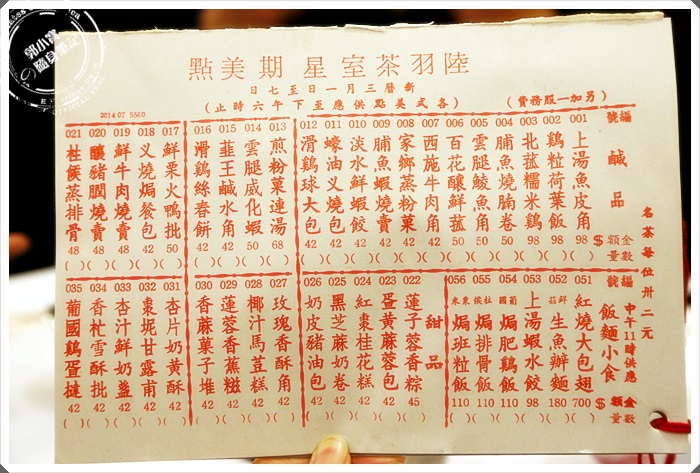 郭小寶の隨身筆記
陸羽茶室 星期美點
新曆三月一日至七日
(各式美點供應至下午六時止)
(另加一服務費)
2014.07 5500
編號 鹹品 金額$ 數量
001 上湯魚皮角 98 ( )
002 鷄粒荷葉飯 98 ( )
003 北菰糯米鷄 98 ( )
004 脯魚燒腩卷 50 ( )
005 雲腿鯪魚角 50 ( )
006 百花釀鮮菰 50 ( )
007 西施牛肉角 42 ( )
008 家鄉蒸粉菓 42 ( )
009 脯魚蝦燒賣 42 ( )
010 淡水鮮蝦餃 42 ( )
011 蠔油义燒包 42 ( )
012 滑鷄球大包 42 ( )
013 煎粉菓連湯 68 ( )
014 雲腿戚化蝦 50 ( )
015 韮王鹹水角 42 ( )
016 滑鷄絲春餅 42 ( )
017 鮮菓火鴨批 50 ( )
018 义燒焗餐包 42 ( )
019 鮮牛肉燒賣 42 ( )
020 釀豬膶燒賣 48 ( )
021 桂侯蒸排骨 48 ( )
名茶每位卅二元
編號 飯麵小食 中午11時供應 金額$ 數量
051 紅燒大包翅 700 ( )
052 鮮菇生魚辦麵 180 ( )
053 上湯蝦水餃 98 ( )
054 葡國焗肥鷄飯 110 ( )
055 柱侯焗排骨飯 110 ( )
056 粟米焗班粒飯 110 ( )
甜品
022 蓮子蓉香粽 45 ( )
023 蛋黃麻蓉包 42 ( )
024 紅棗桂花糕 42 ( )
025 黑芝麻奶卷 42 ( )
026 奶皮豬油包 42 ( )
027 玫瑰香酥角 42 ( )
028 椰汁馬荳糕 42 ( )
029 蓮蓉香蕉糍 42 ( )
030 香麻菓子堆 42 ( )
031 杏片奶黃酥 42 ( )
032 棗坭甘露甫 42 ( )
033 杏汁鮮奶盞 42 ( )
034 香杧雪酥批 42 ( )
035 葡國鷄蛋撻 42 ( )